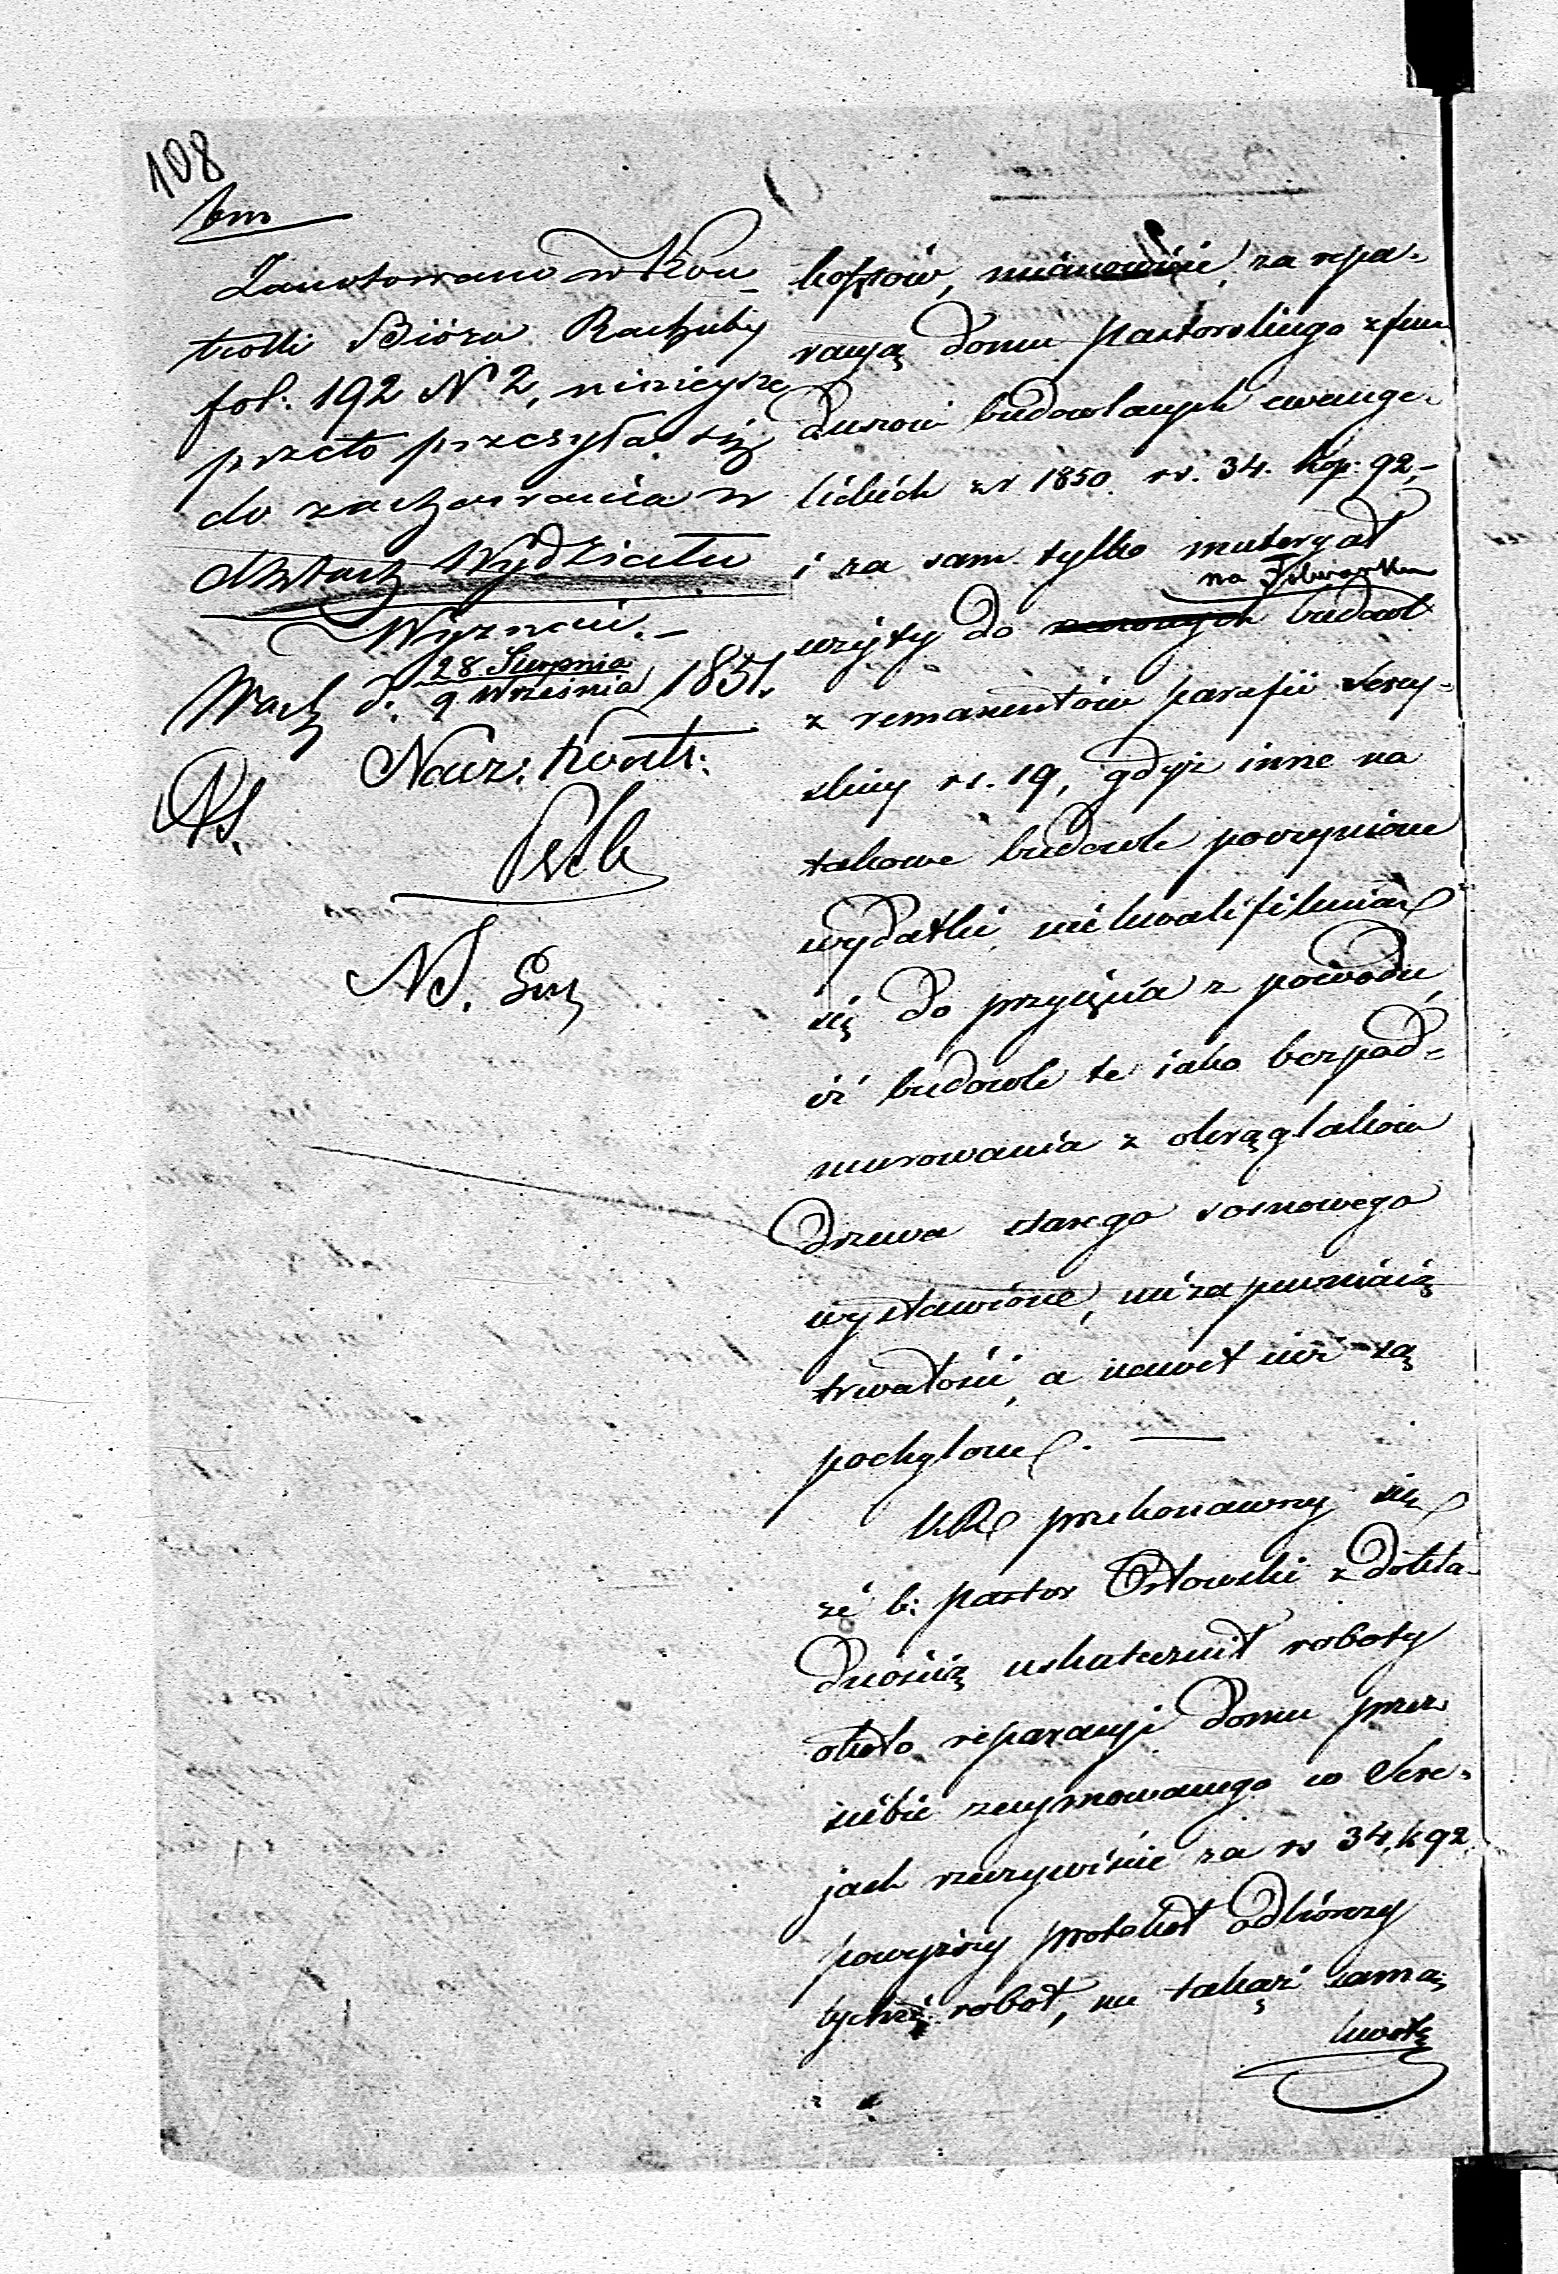 108
Zanotowano w Kon-
trolli Bióra Rachuby
fol: 192 N 2, niniejsze
przeto przesyła się
do zachowania w
Aktach Wydziału
Wyznań.-
Warsz d. 28 Sierpnia
9 Września 1851.
Nacz: Kontr:
NS.
kosztów, mianowicie za repa-
racyą domu pastorskiego z fun-
duszów budowlanych ewange-
lickich z r 1850. rs. 34. kop: 92,-
i za sam tylko materyał
na Folwarku
użyty do budowl
z remanentów parafii Serey-
skiey rs. 19, gdyż inne na
takowe budowle poczynione
wydatki niekwalifikuią
się do przyięcia z powodu,
iż budowle te iako bez pod-
murowania z okrąglaków
drzewa starego sosnowego
wystawione, niezapewniaią
trwałości, a nawet iuż są
pochylone. —
KR przekonawszy się
że b: pastor Orłowski z dokła-
dnością uskutecznił roboty
około reparacyi domu przez
siebie zaymowanego w Sere-
jach rzeczywiście za rs 34, k 92
powyższy protokół odbiorczy
tychże robot, na takąż samą
kwotę